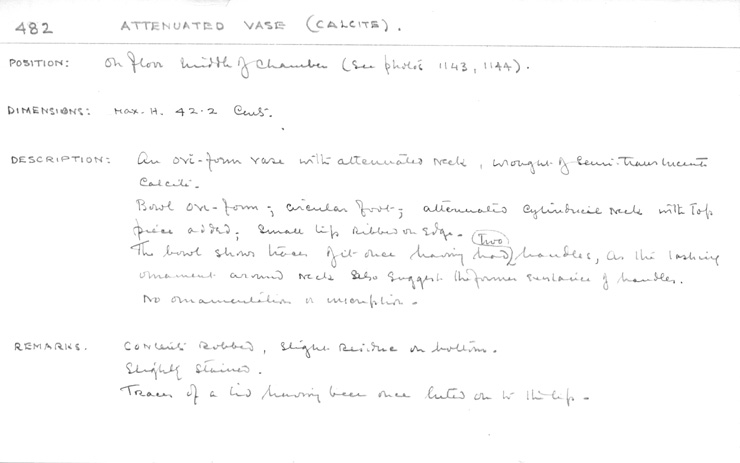 482 ATTENUATED VASE (CALCITE).
POSITION: On floor middle of Chamber (See photos 1143, 1144).
DIMENSIONS: Max. H. 42.2 Cents.
DESCRIPTION: An ovi-form vase with attenuated neck, wrought of semi-translucent
Calcite.
Bowl ovi-form; circular foot; attenuated cylindrical neck with top
piece added; small lip ribbed on edge.
The bowl shows traces of it once having had two handles, as the lashing
ornament around neck also suggest the former existence of handles.
No ornamentation or inscription.
REMARKS. Contents Robbed, slight residue on bottom.
Slightly stained.
Traces of a lid having been once luted on to the lip.